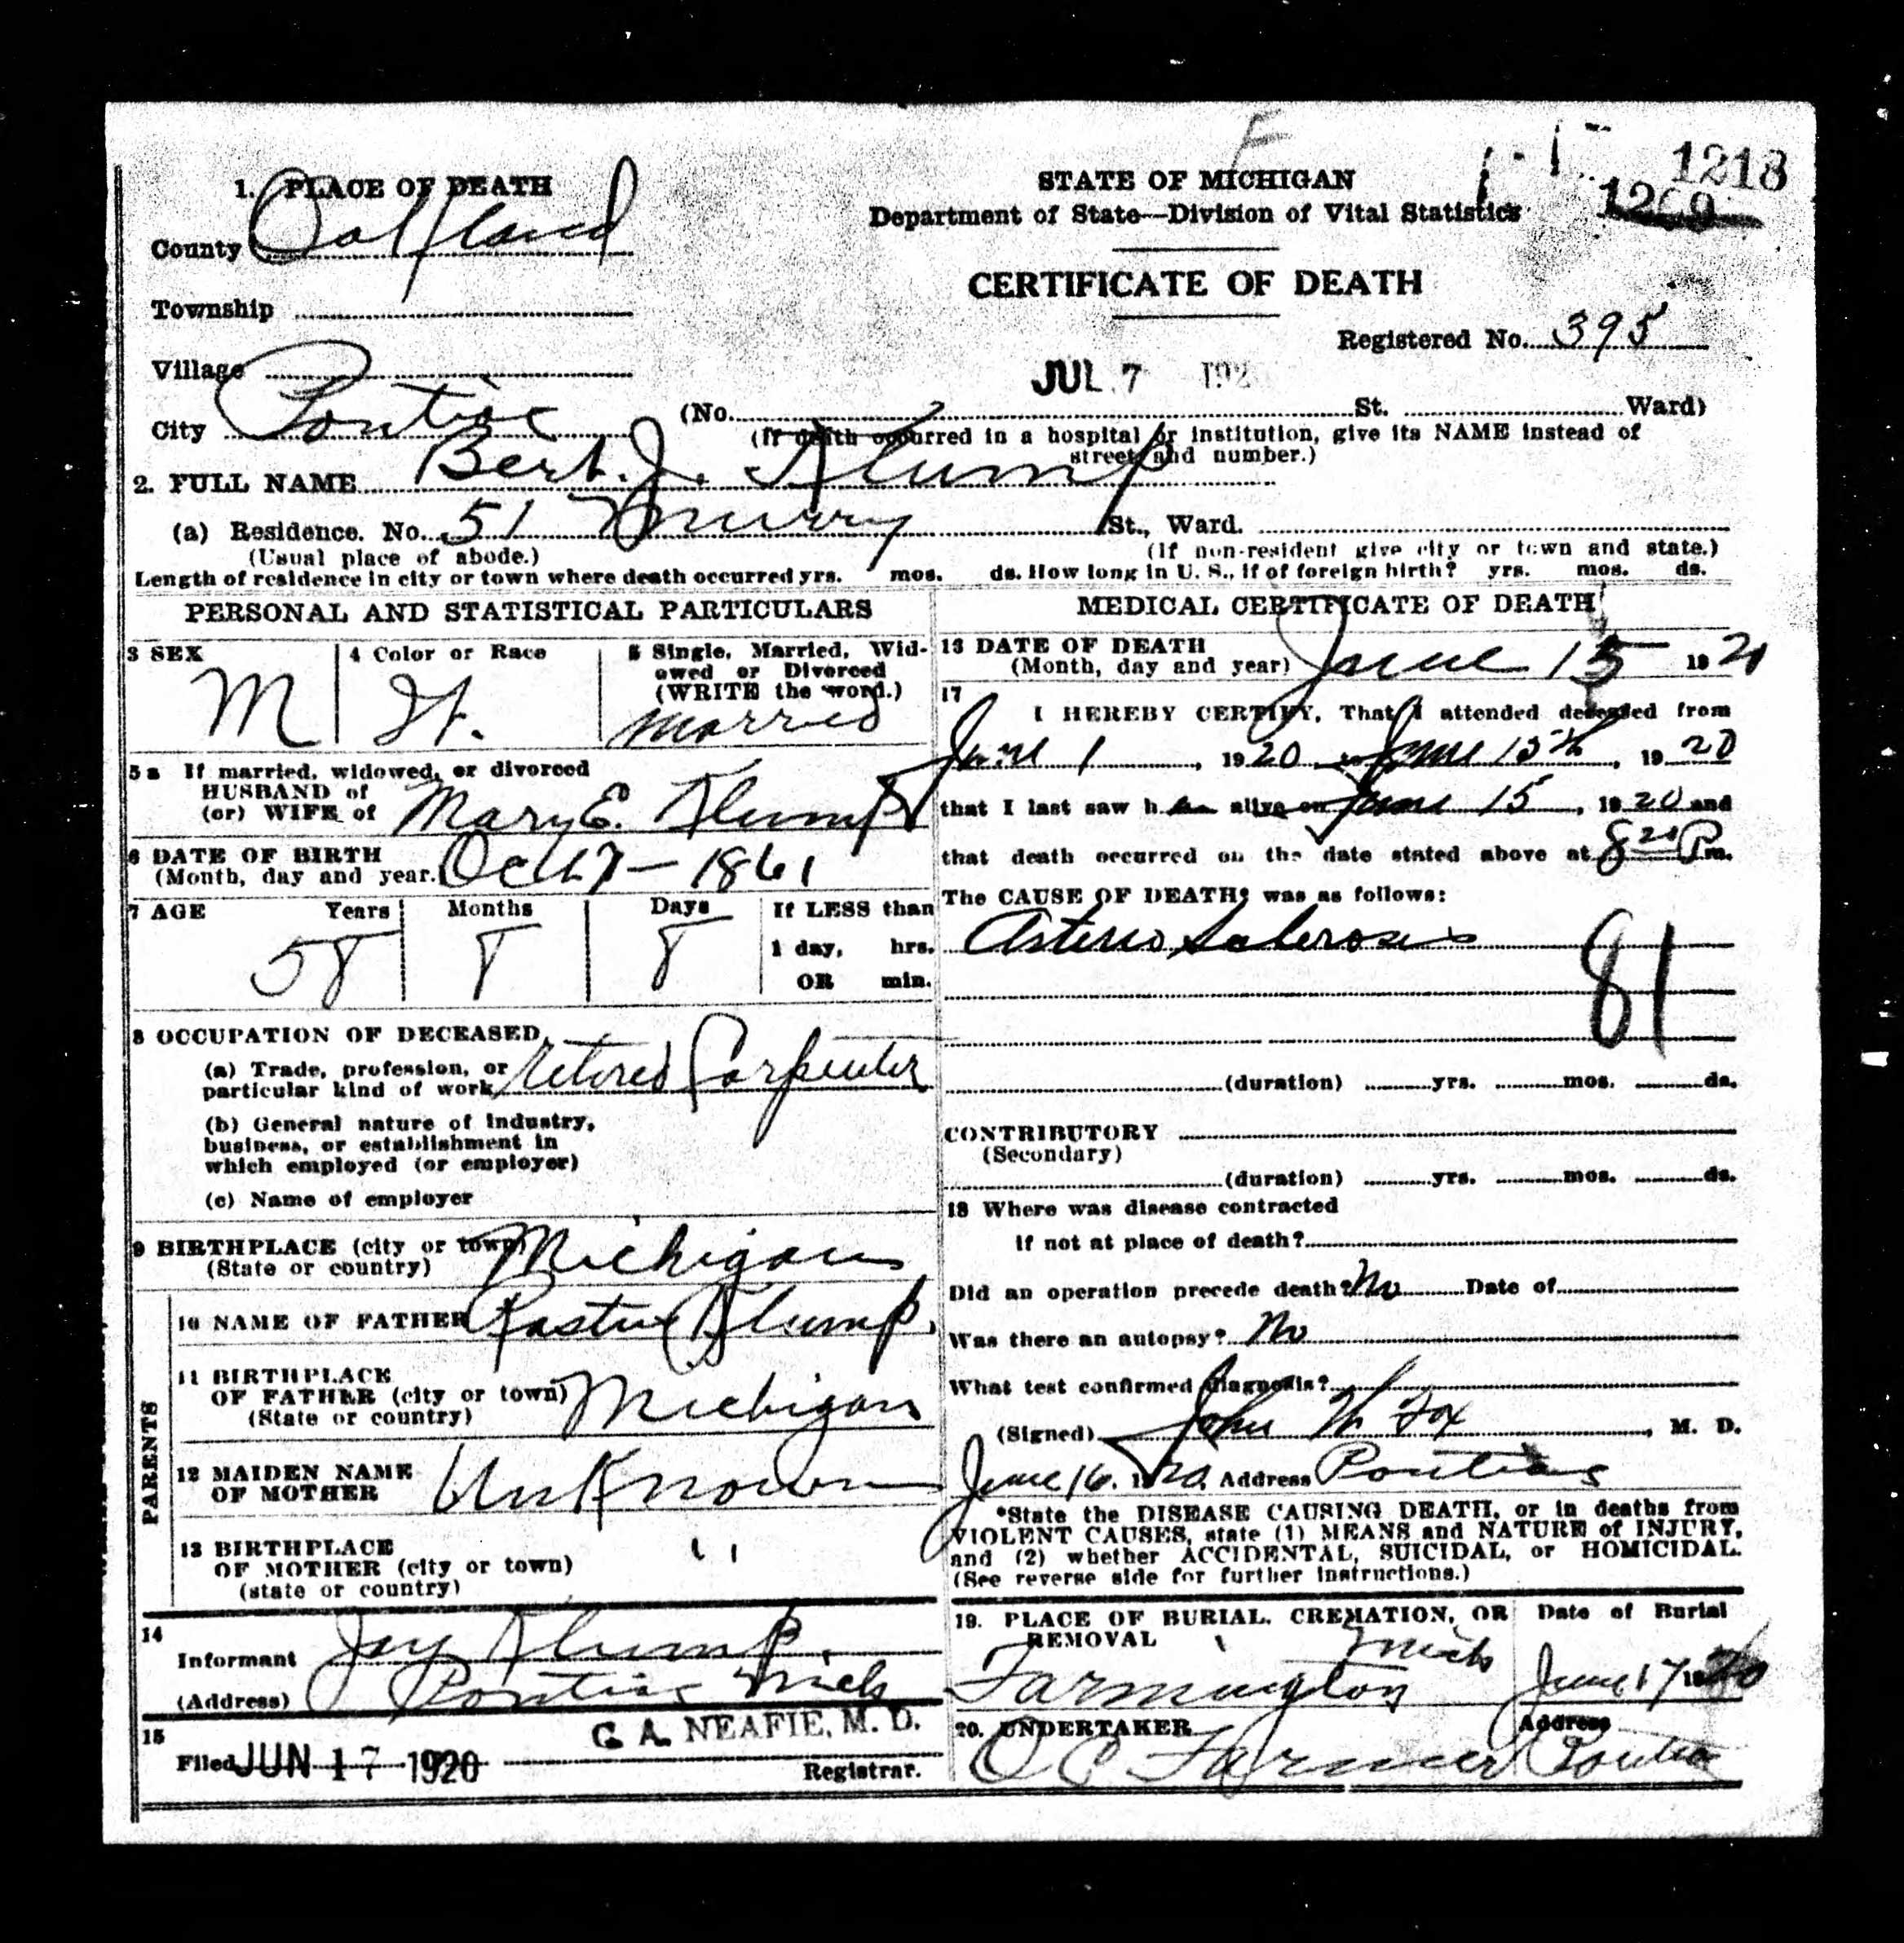 1218
1. PLACE OF DEATH
STATE OF MICHIGAN
Department of State—Division of Vital Statistics
County Oakland
CERTIFICATE OF DEATH
Township
Registered No. 395
Village
JUL 7 192
City Pontiac (No. St. Ward)
(If death occurred in a hospital or institution, give its NAME instead of
street and number.)
2. FULL NAME Bert. J. Klump
(a) Residence. No. 51 Murry St., Ward.
(Usual place of abode.) (If non-resident give city or town and state.)
Length of residence in city or town where death occurred yrs. mos. ds. How long in U. S., if of foreign birth? yrs. mos. ds.
PERSONAL AND STATISTICAL PARTICULARS
3 SEX
M
4 Color or Race
5 Single, Married, Wid-
owed or Divorced
(WRITE the word.)
Married
5a If married, widowed, or divorced
HUSBAND of
(or) WIFE of Mary E. Klump
6 DATE OF BIRTH
(Month, day and year. Oct 7 - 1861
7 AGE Years Months Days If LESS than
58 8 8 1 day, hrs.
OR min.
8 OCCUPATION OF DECEASED
(a) Trade, profession, or
particular kind of work retired Carpenter
(b) General nature of industry,
business, or establishment in
which employed (or employer)
(c) Name of employer
9 BIRTHPLACE (city or town)
(State or country) Michigan
PARENTS
10 NAME OF FATHER Klump
11 BIRTHPLACE
OF FATHER (city or town)
(State or country) Michigan
12 MAIDEN NAME
OF MOTHER Unknown
13 BIRTHPLACE
OF MOTHER (city or town) "
(state or country)
14
Informant Jay Klump
(Address) Pontiac Mich
15 C. A. NEAFIE, M. D.
Filed JUN 17 1920 Registrar.
MEDICAL CERTIFICATE OF DEATH
16 DATE OF DEATH
(Month, day and year) June 15 1920
17
I HEREBY CERTIFY, That I attended deceased from
June 1, 1920 to June 15th, 1920
that I last saw h alive on June 15, 1920 and
that death occurred on the date stated above at 8 20 P m.
The CAUSE OF DEATH* was as follows:
Arterio Sclerosis
81
(duration) yrs. mos. ds.
CONTRIBUTORY
(Secondary)
(duration) yrs. mos. ds.
18 Where was disease contracted
if not at place of death?
Did an operation precede death? No Date of
Was there an autopsy? No
What test confirmed diagnosis?
(Signed) John W Fox, M. D.
June 16. 1920. Address Pontiac
*State the DISEASE CAUSING DEATH, or in deaths from
VIOLENT CAUSES, state (1) MEANS and NATURE of INJURY,
and (2) whether ACCIDENTAL, SUICIDAL, or HOMICIDAL.
(See reverse side for further instructions.)
19. PLACE OF BURIAL, CREMATION, OR
REMOVAL
Farmington Mich
Date of Burial
June 17 1920
20. UNDERTAKER
O C Farmer
Address
Pontiac